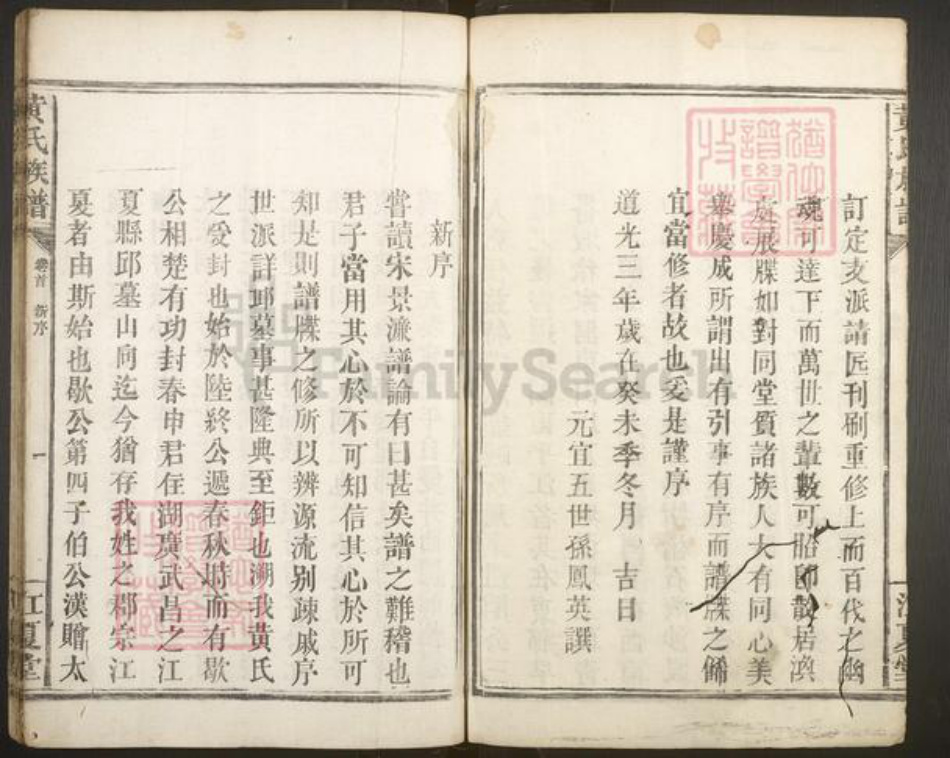 訂定支派請匠刊刷重修上而百代之幽
魂可達下而萬世之輩數可昭即散居
展牒如對同堂質諸族人大有同心美
舉慶成所謂出有引事有序而譜牒之
宜當修者故也爰是謹序
道光三年歲在癸未季冬月 吉日
元宜五世孫鳳英譔
新序
嘗讀宋景濂譜論有曰甚矣譜之難稽也
君子當用其心於不可知信其心於所可
知是則譜牒之修所以辨源流別疎戚序
世派詳邱墓事甚隆典至鉅也溯我黃氏
之受封也始於陸終公遞春秋時而有歇
公相楚有功封春申君在湖廣武昌之江
夏縣邱墓山向迄今猶存我姓之郡宗江
夏者由斯始也歇公第四子伯公漢贈太
黃氏族譜
卷首 新序
一
江夏堂
FamilySearch